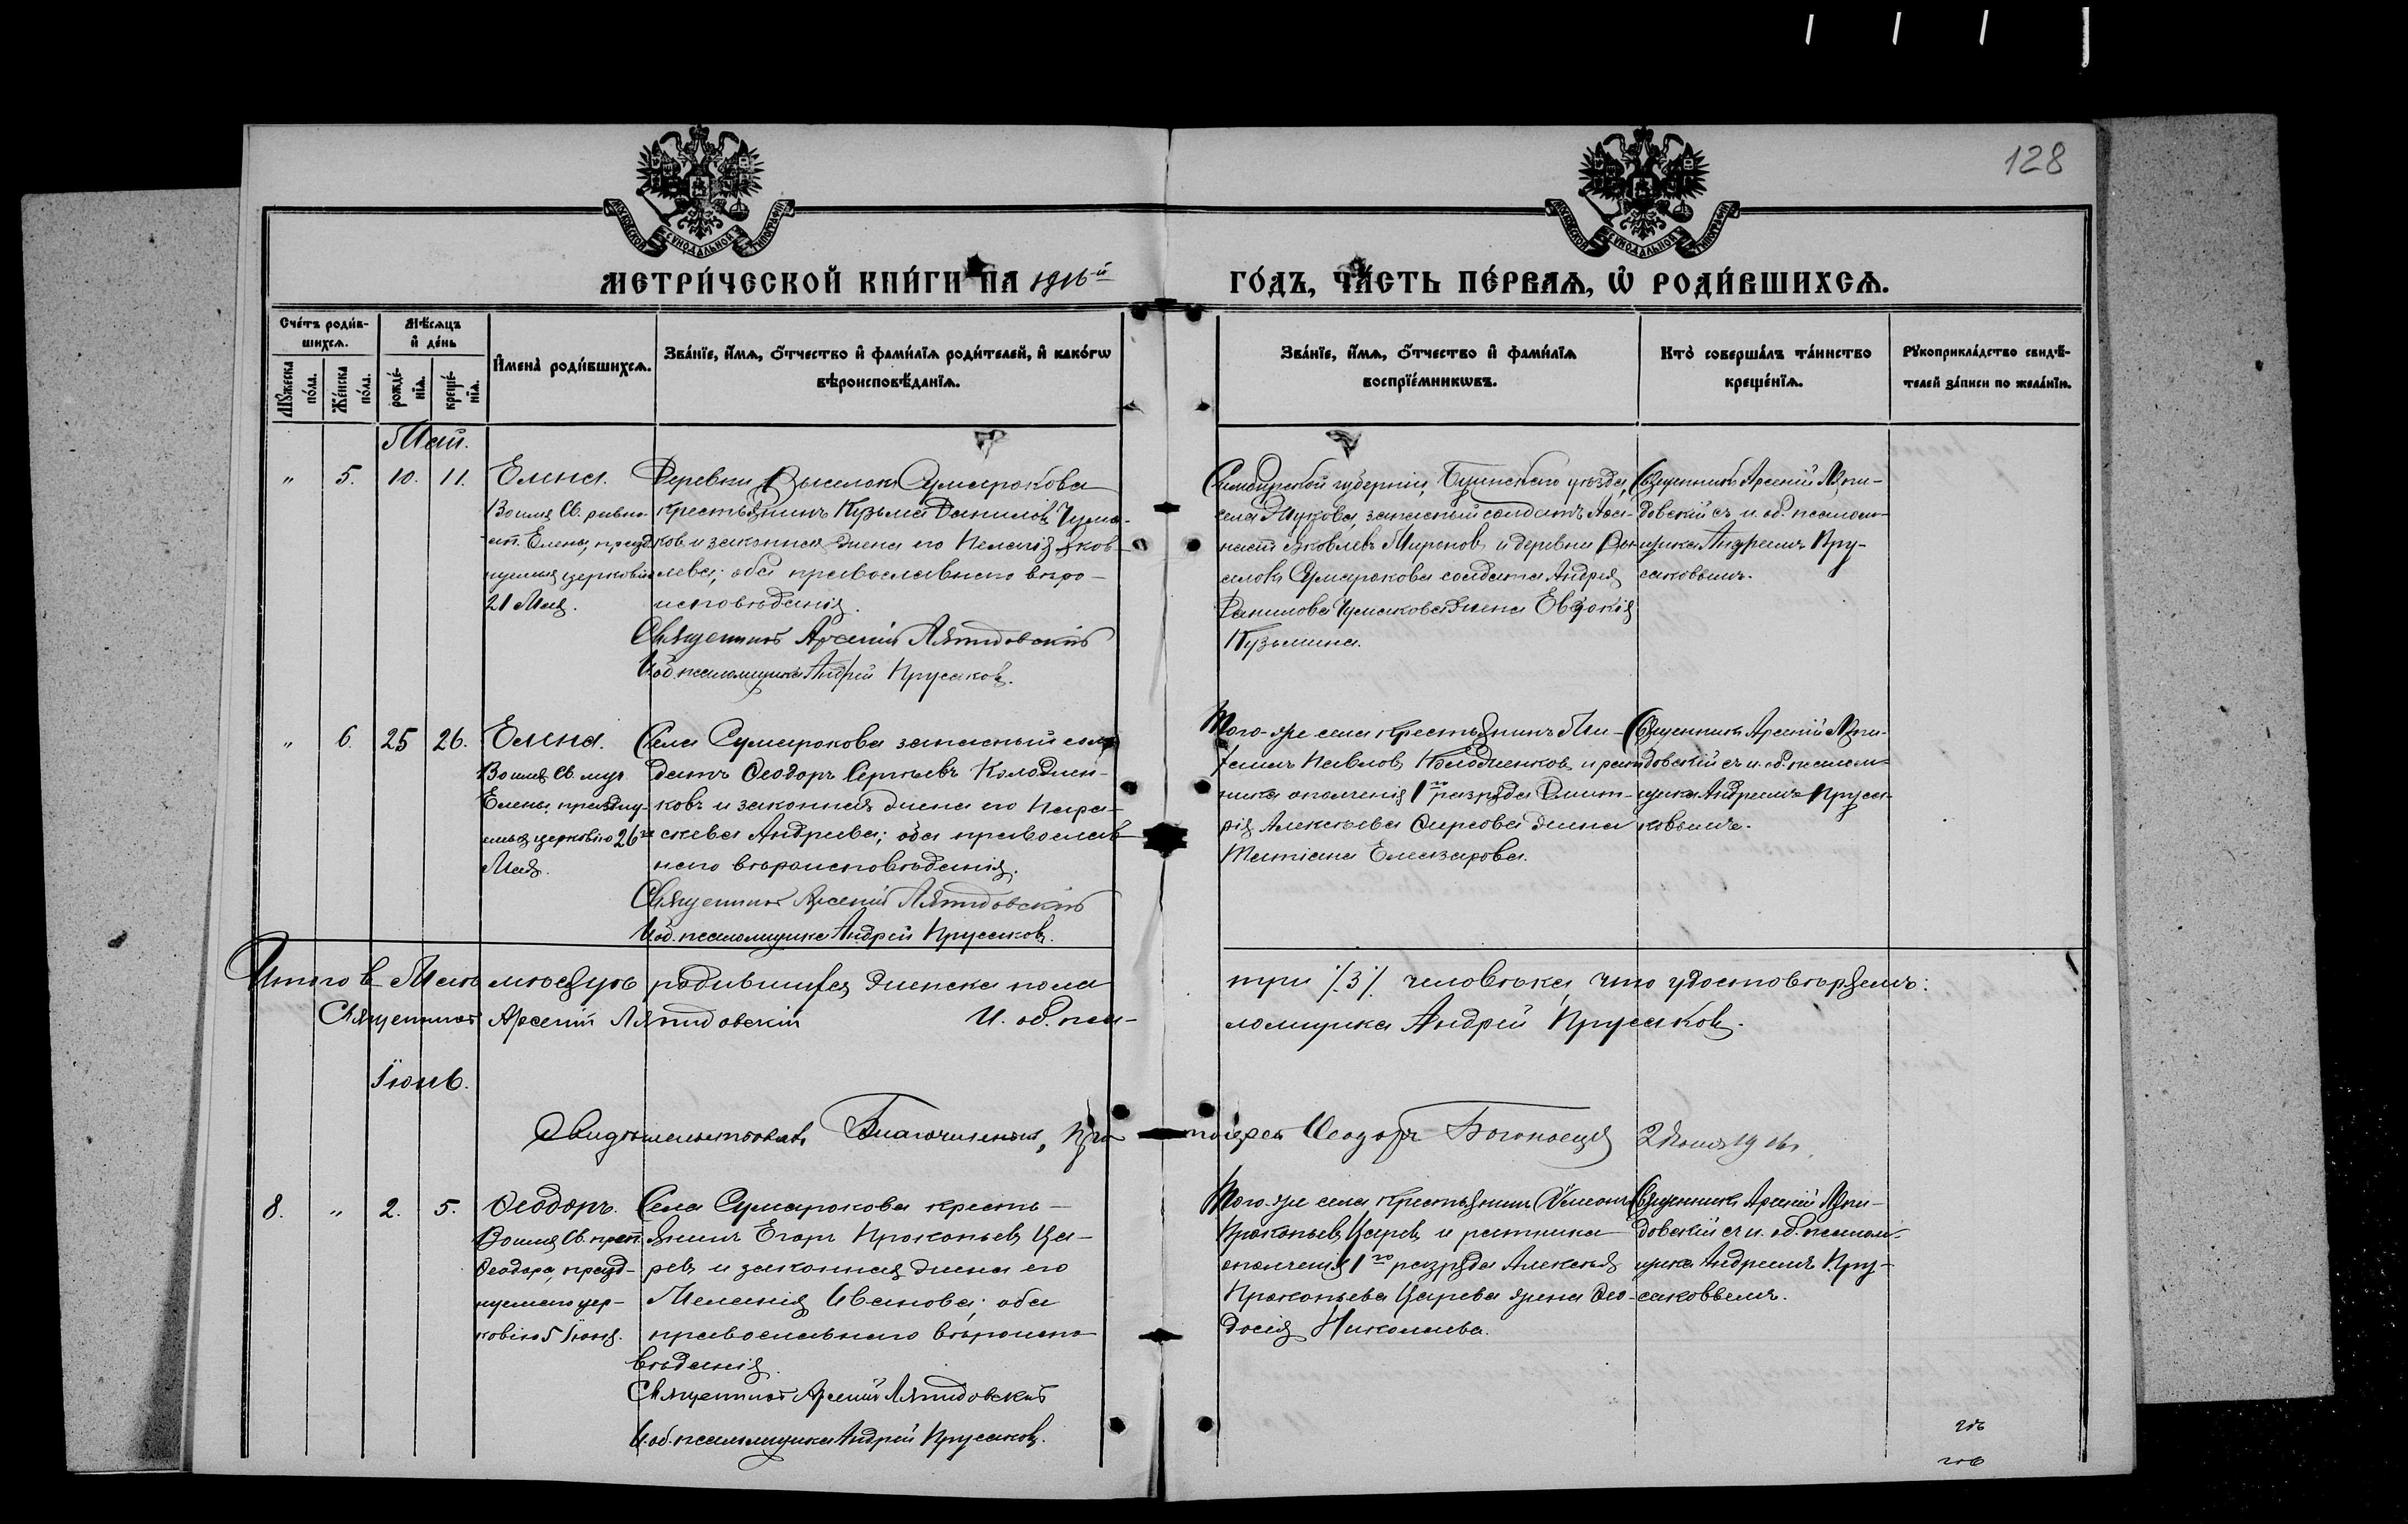 128
МОСКОВСКОЙ СѴНОДАЛЬНОЙ ТИПОГРАФІИ
МОСКОВСКОЙ СѴНОДАЛЬНОЙ ТИПОГРАФІИ
МЕТРИ́ЧЕСКОЙ КНИ́ГИ НА 1916-й ГО́ДЪ, ЧА́СТЬ ПЕ́РВАѦ, Ѡ РОДИ́ВШИХСѦ.
Сче́тъ роди́в-
шихсѧ.
Мѣ́сѧцъ
и҆ де́нь
Мꙋ́жеска по́ла.
Же́нска по́ла.
рожде́-
нїѧ.
креще́-
нїѧ.
И҆мена̀ роди́вшихсѧ.
Зва́нїе, и҆́мѧ, ѻ҆́тчество и҆ фами́лїѧ роди́телей, и҆ како́гѡ
вѣроисповѣ́данїѧ.
Зва́нїе, и҆́мѧ, ѻ҆́тчество и҆ фами́лїѧ
воспрїе́мникѡвъ.
Кто̀ соверша́лъ та́инство
креще́нїѧ.
Рꙋкоприкла́дство свидѣ́-
телей за́писи по жела́нїю.
Май.
" 5. 10. 11.
Елена.
Во имя Св. равно-
ап. Елены, празд-
нуемыя церковію
21 Мая.
Деревни Выселокъ Сумарокова
крестьянинъ Кузьма Даниловъ Чума-
ковъ и законная жена его Пелагія Яков-
лева; оба православнаго вѣро-
исповѣданія.
Священникъ Арсеній Ляпидовскій
И. об. псаломщика Андрей Прусаковъ.
Симбирской губерніи, Буинскаго уѣзда,
села Жукова, запасный солдатъ
Яковлевъ Мироновъ и деревни Вы-
селокъ Сумарокова солдата Андрея
Данилова Чумакова жена Евдокія
Кузьмина.
Священникъ Арсеній Ляпи-
довскій съ и. об. псалом-
щика Андреемъ Пру-
саковымъ.
" 6. 25 26.
Елена.
Во имя Св. муч.
Елены, празднуе-
емыя церковію 26го
Мая.
Села Сумарокова запасный сол-
датъ Ѳеодоръ Сергѣевъ Колоднен-
ковъ и законная жена его Пара-
скева Андреева; оба православ-
наго вѣроисповѣданія.
Священникъ Арсеній Ляпидовскій
И. об. псаломщика Андрей Прусаковъ.
Того-же села крестьянинъ Ми-
хаилъ Павловъ Колодненковъ и рат-
ника ополченія 1го разряда Димит-
рія Алексѣева Фирсова жена
Татіана Елеазарова.
Священникъ Арсеній Ляпи-
довскій съ и. об. псалом-
щика Андреемъ Пруса-
ковымъ.
Итого в Маѣ мѣсяцѣ родившихся женска пола три /.3/. человѣка, что удостовѣряемъ:
Священникъ Арсеній Ляпидовскій И. об. пса-
ломщика Андрей Прусаковъ.
Іюнь.
Свидѣтельствовалъ Благочинный, Про-
тоіерей Ѳеодоръ Богоявл 2 Іюня 1916 г.
8. " 2. 5.
Ѳеодоръ.
Во имя Св. преп.
Ѳеодора, празд-
нуемаго цер-
ковію 5 Іюня.
Села Сумарокова кресть-
янинъ Егоръ Прокопьевъ Ца-
ревъ и законная жена его
Меланія Иванова; оба
православнаго вѣроиспо-
вѣданія.
Священникъ Арсеній Ляпидовскій
И. об. псаломщика Андрей Прусаковъ.
Того-же села крестьянинъ Симеонъ
Прокопьевъ Царевъ и ратника
ополченія 1го разряда Алексѣя
Прокопьева Царева жена Ѳео-
досія Николаева.
Священникъ Арсеній Ляпи-
довскій съ и. об. псалом-
щика Андреемъ Пру-
саковымъ.